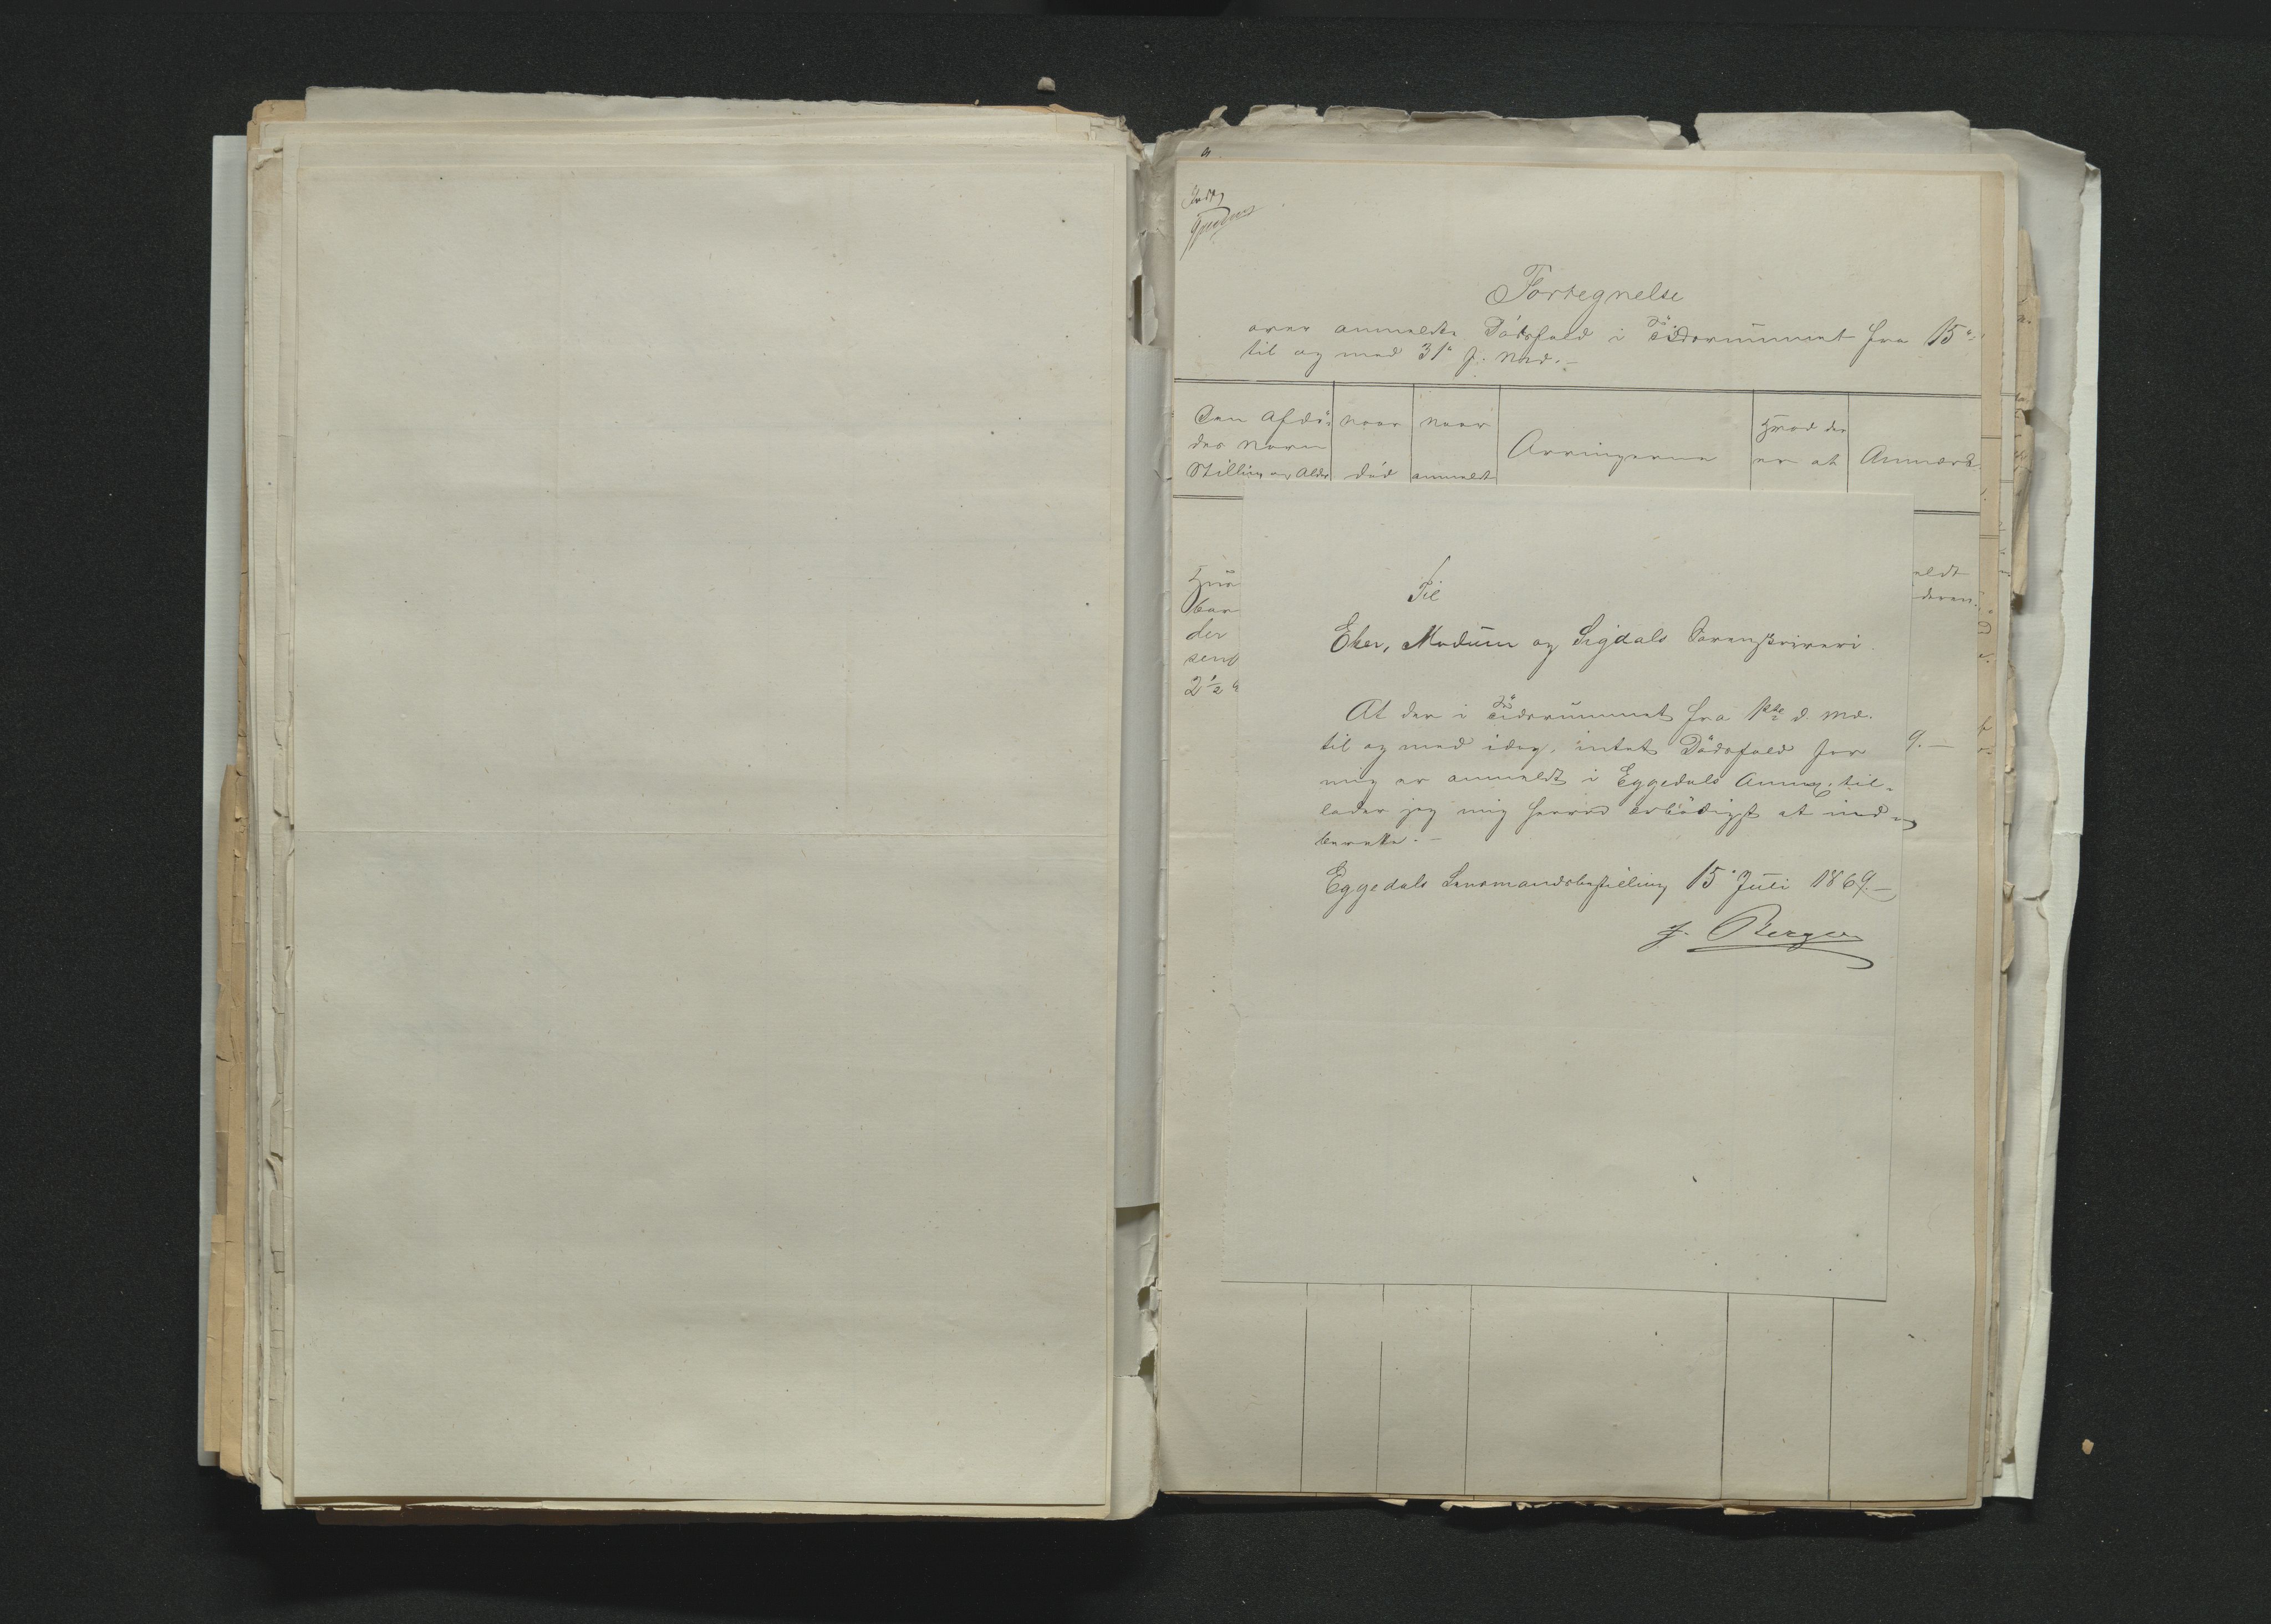 Fortegnelse
over anmeldte Dödsfald i Tidsrummet fra 15de
til og med 31te f. Md.
Den Afdö-
des Navn
Stilling og Alder
naar
död
naar
anmeldt
Arvingerne
Hvad der
er at
Anmærk.
Huus
bar
der
sens
2 1/2
eldt
deren.
9.
Til
Eker, Modum og Sigdals Sorenskriveri
At der i Tidsrummet fra 1ste d. Md.
til og med idag, intet Dödsfald for
mig er anmeldt i Eggedals Annex, til-
lader jeg mig herved ærbödigst at ind-
berette.-
Eggedals Lensmandsbestilling 15de Juli 1869.-
J. Berger